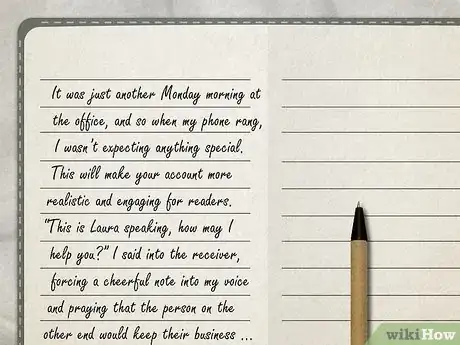 It was just another Monday morning at
the office, and so when my phone rang,
I wasn't expecting anything special.
This will make your account more
realistic and engaging for readers.
"This is Laura speaking, how may I
help you?" I said into the receiver,
forcing a cheerful note into my voice
and praying that the person on the
other end would keep their business ...
wikiHow